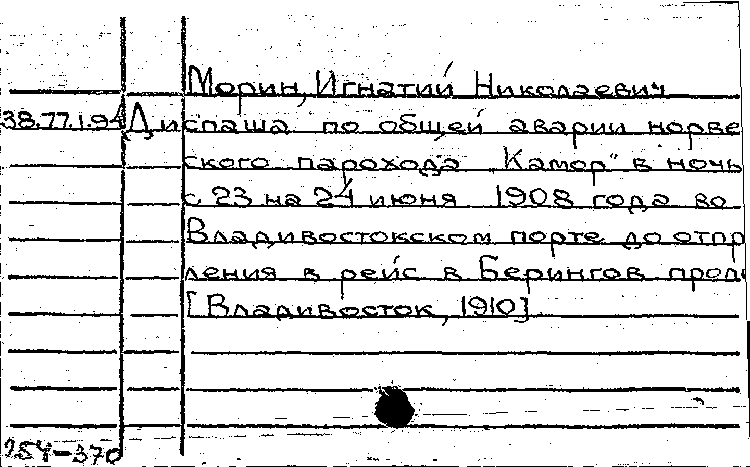 Морин, Игнатий Николаевич
38.77.1.94 Диспаша по общей аварии норве
ского парохода "Камор" в ночь
с 23 на 24 июня 1908 года во
Владивостокском порте до отпр
ления в рейс в Берингов прол
[Владивосток, 1910]
254-370